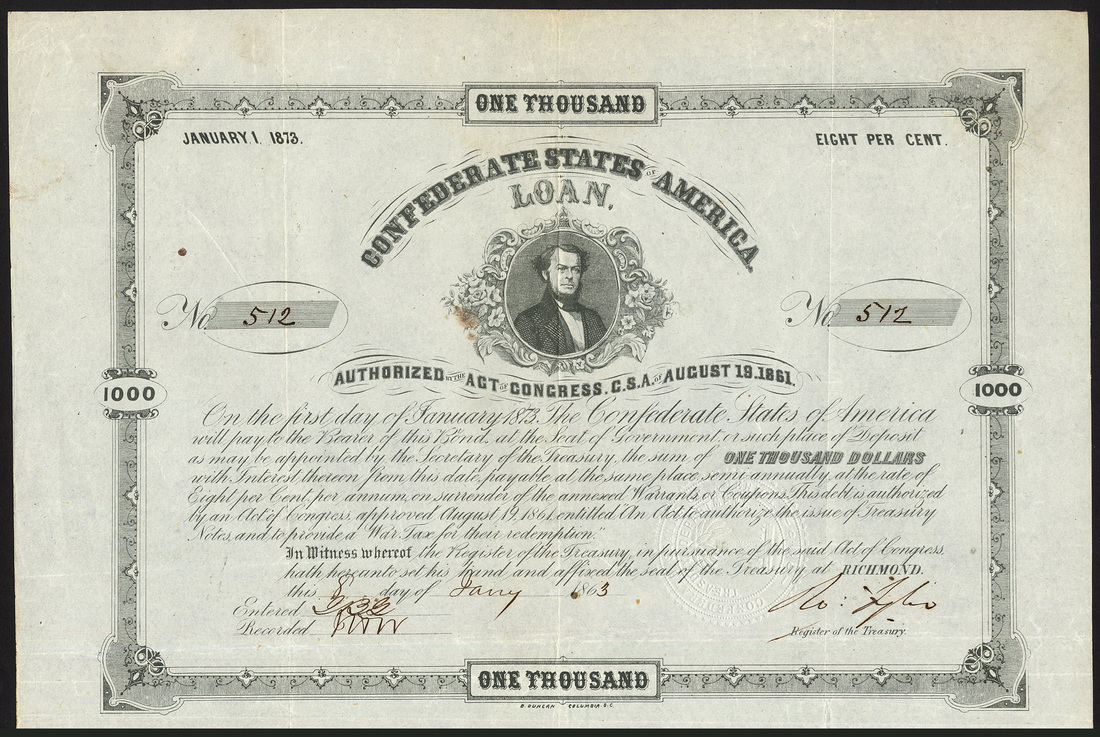 ONE THOUSAND
JANUARY.1. 1873.
EIGHT PER CENT.
CONFEDERATE STATES OF AMERICA
LOAN.
No 512
No 512
AUTHORIZED BY THE ACT OF CONGRESS. C.S.A. OF AUGUST 19.1861.
1000
1000
On the first day of January 1873, The Confederate States of America
will pay to the Bearer of this Bond, at the Seat of Government, or such place of Deposit
as may be appointed by the Secretary of the Treasury, the sum of ONE THOUSAND DOLLARS
with Interest thereon from this date, payable at the same place semi-annually, at the rate of
Eight per Cent, per annum, on surrender of the annexed Warrants, or Coupons. This debt is authorized
by an Act of Congress, approved August 19, 1861, entitled "An Act to authorize the issue of Treasury
Notes, and to provide a War Tax for their redemption."
In Witness whereof, the Register of the Treasury, in pursuance of the said Act of Congress,
hath hereunto set his hand, and affixed the seal of the Treasury at RICHMOND.
this 8 day of Jany 1863
Entered
Recorded
Ro: Tyler
Register of the Treasury.
ONE THOUSAND
B. DUNCAN COLUMBIA. S.C.